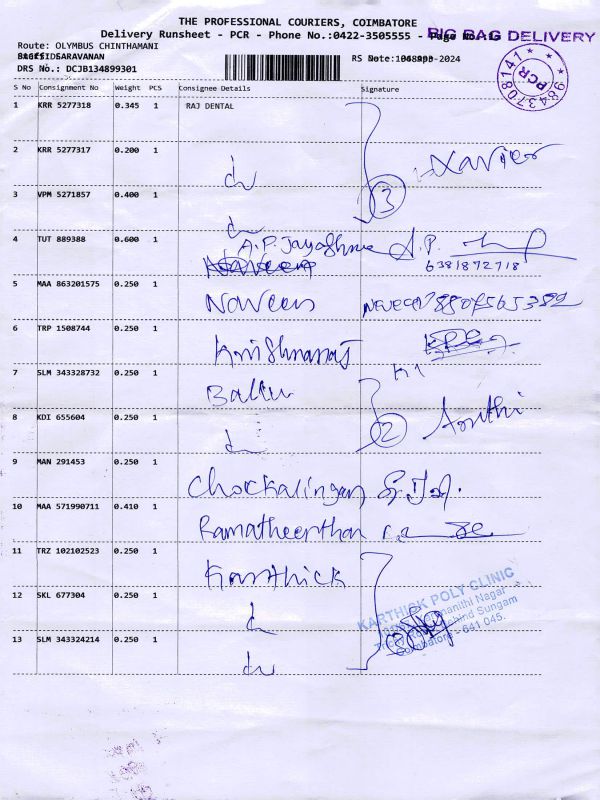 THE PROFESSIONAL COURIERS, COIMBATORE
Delivery Runsheet - PCR - Phone No.:0422-3505555 - Page No.
BIG BAG DELIVERY
Route: OLYMBUS CHINTHAMANI
SARAVANAN
DRS No.: DCJB134899301
RS Date: -2024
9843708141 PCR
S No Consignment No Weight PCS Consignee Details Signature
1 KRR 5277318 0.345 1 RAJ DENTAL
2 KRR 5277317 0.200 1 Xavier
3 VPM 5271857 0.400 1 3
4 TUT 889388 0.600 1 A.P. Jayashree A.P.
6381872718
5 MAA 863201575 0.250 1 Naveen
6 TRP 1508744 0.250 1 Krishnaraj
7 SLM 343328732 0.250 1
8 KDI 655604 0.250 1 2
9 MAN 291453 0.250 1 Chockalingam
10 MAA 571990711 0.410 1 Ramatheerthan
11 TRZ 102102523 0.250 1 Karthick
12 SKL 677304 0.250 1
KARTHICK POLY CLINIC
Behind Sungam
Coimbatore - 641 045.
13 SLM 343324214 0.250 1